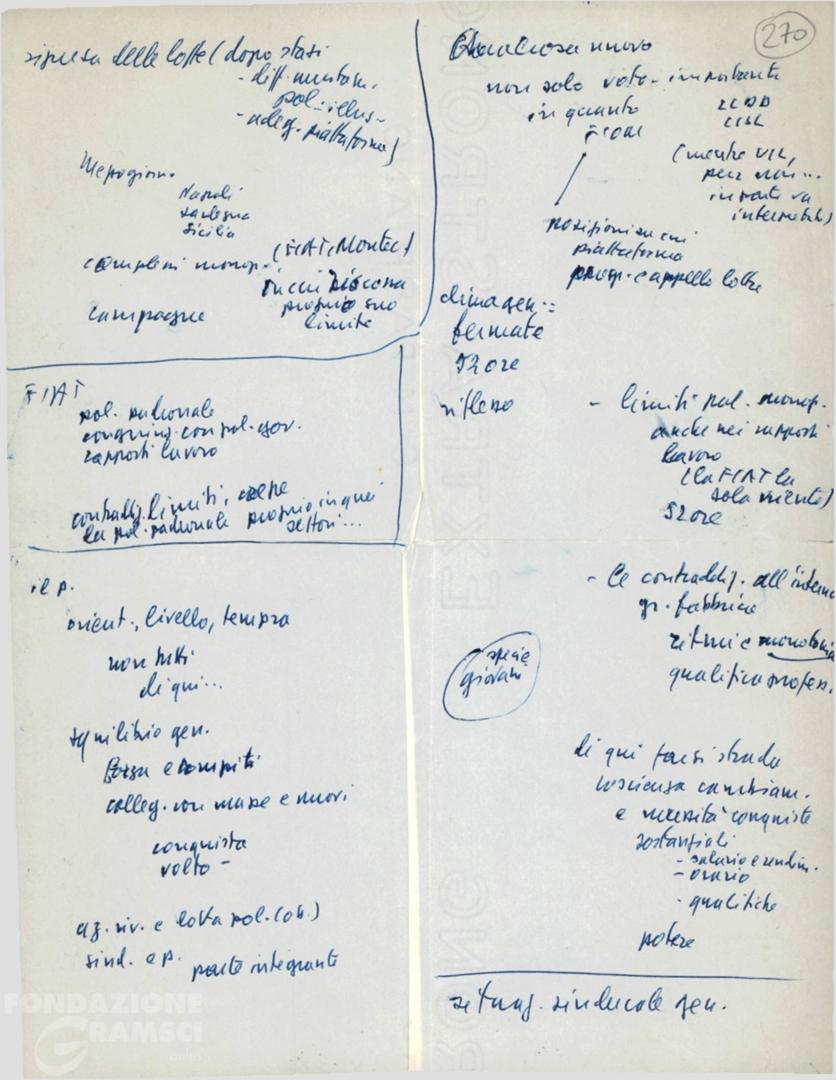 270
ripresa delle lotte (dopo stasi
- diff. mutam.
pol. illus-
- adeg. piattaforma)
Mezzogiorno
Napoli
Sardegna
Sicilia
complessi monop. (FIAT, Montec)
in cui
proprio suo
limite
campagne
FIAT
pol. padronale
congiung. con pol. gov.
rapporti lavoro
contraddiz. limiti,
la pol. padronale proprio in quei
settori...
il p.
orient., livello, tempra
non tutti
di qui...
squilibrio gen.
forza e compiti
colleg. con masse e nuovi
conquista
volto -
az. riv. e lotta pol. (ob.)
sind. e p.
parte integrante
Qualcosa nuovo
non solo voto - importante
in quanto
FIOM
LLDD
CISL
(mentre UIL,
per noi...
in parte va
interpretato)
posizioni su cui
piattaforma
progr. e appello lotte
clima gen.:
fermate
52 ore
riflesso
- limiti pol. monop.
anche nei rapporti
lavoro
(la FIAT la
sola vicenta)
52 ore
- le contraddiz. all'interno
gr. fabbrica
ritmi e monotonia
qualifica profess.
specie
giovani
di qui farsi strada
coscienza cambiam.
e necessità conquiste
sostanziali
- salario e rendim.
- orario
- qualifiche
potere
situaz. sindacale gen.
FONDAZIONE
GRAMSCI